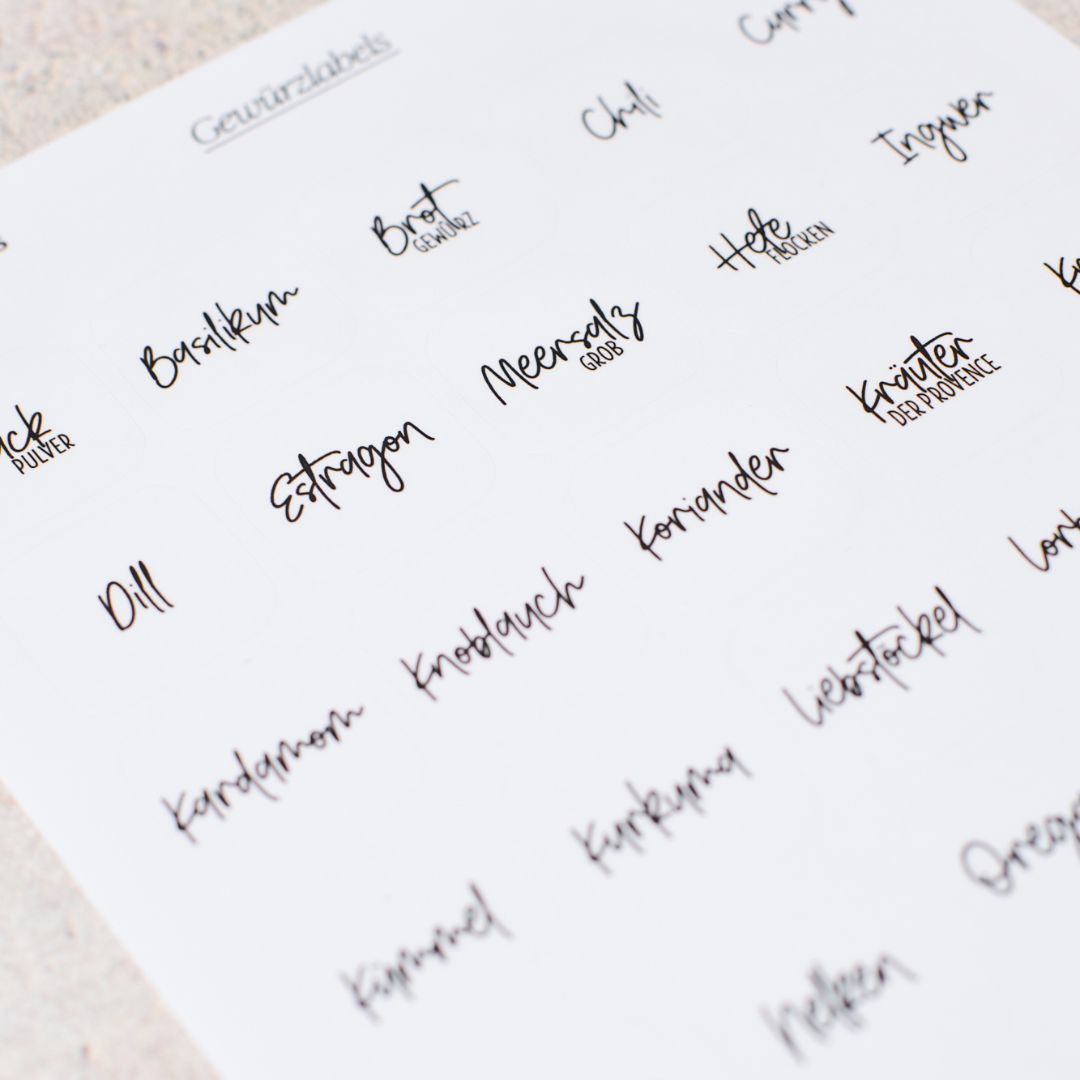 Gewürzlabels
Curry
Chili
Ingwer
Brot
GEWÜRZ
Hefe
FLOCKEN
Basilikum
Meersalz
GROB
Kräuter
DER PROVENCE
PULVER
Estragon
Koriander
Dill
Knoblauch
Liebstöckel
Kardamom
Kurkuma
Kümmel
Nelken